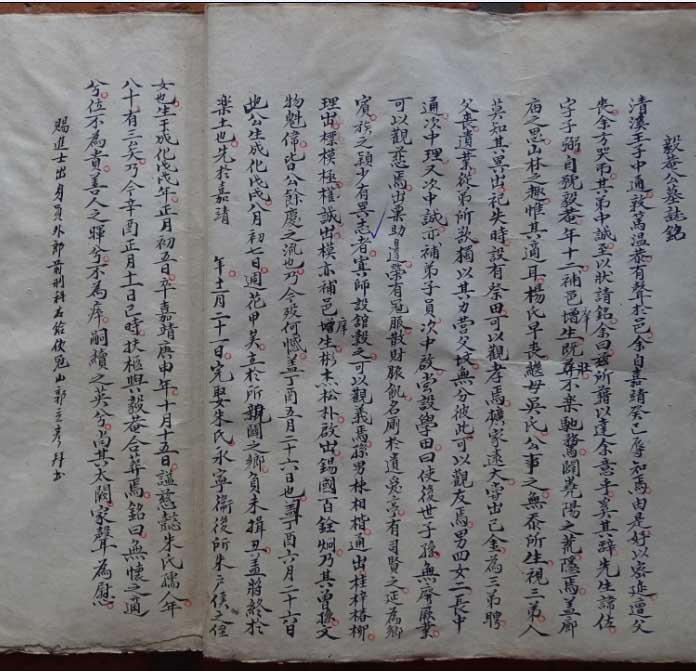 毅菴公墓誌銘
清溪王子中通敦篤溫恭有聲於邑余自嘉靖癸巳辱知焉由是好以密延遭父
喪余為哭弔其弟中誠至以狀請銘余曰茲所籍以達余意乎莫其辭先生諱佐
字子弼自號毅菴年十二補邑增生既庠不樂馳騖闢堯陽之荒隱焉蓋廊
庙之思山林之趣惟其適耳楊氏早喪繼母吳氏公事之無忝所生視三弟人
莫知其異出祀失時設有祭田可以觀孝焉擴家遠大寄出己金為三弟聘
父喪遺業從弟所欲獨以其力營父墳無分彼此可以觀友焉男四女二長中
通次中理又次中誠亦補弟子員次中啟嘗設學田曰使後世子孫無廢厥業
可以觀慈焉出粟助邊榮有冠服散財賑飢名廟於遺愛堂有司賢之延為鄉
賓族之穎少有異志者賓師設館穀之可以觀義焉孫男棟相楷通出桂梓格柳
理出標模極權誠出模亦補邑庠增生彬杰松朴啟出錫國百銓炯乃其曾孫文
物魁偉皆公餘慶之流也乃今歿何憾蓋丁酉五月二十六日也葬丁酉六月二十六日
也公生成化戊戌八月初七日週花甲矣立於所親闢之鄉負未揖丑蓋將終於
楽土也先於嘉靖 年十一月二十一日完娶朱氏永寧衛後所朱戶侯之侄
女也生于成化戊戌年正月初五日卒嘉靖庚申年十月十五日謚慈懿朱氏孺人年
八十有三矣乃今辛酉正月十一日巳時扶柩與毅菴合葬焉銘曰無懷之適
兮位不為貴善人之暉兮不為庳嗣續之英兮尚其太閥家聲為慰
賜進士出身員外郎前刑科右給使冠山郭立彥拜書